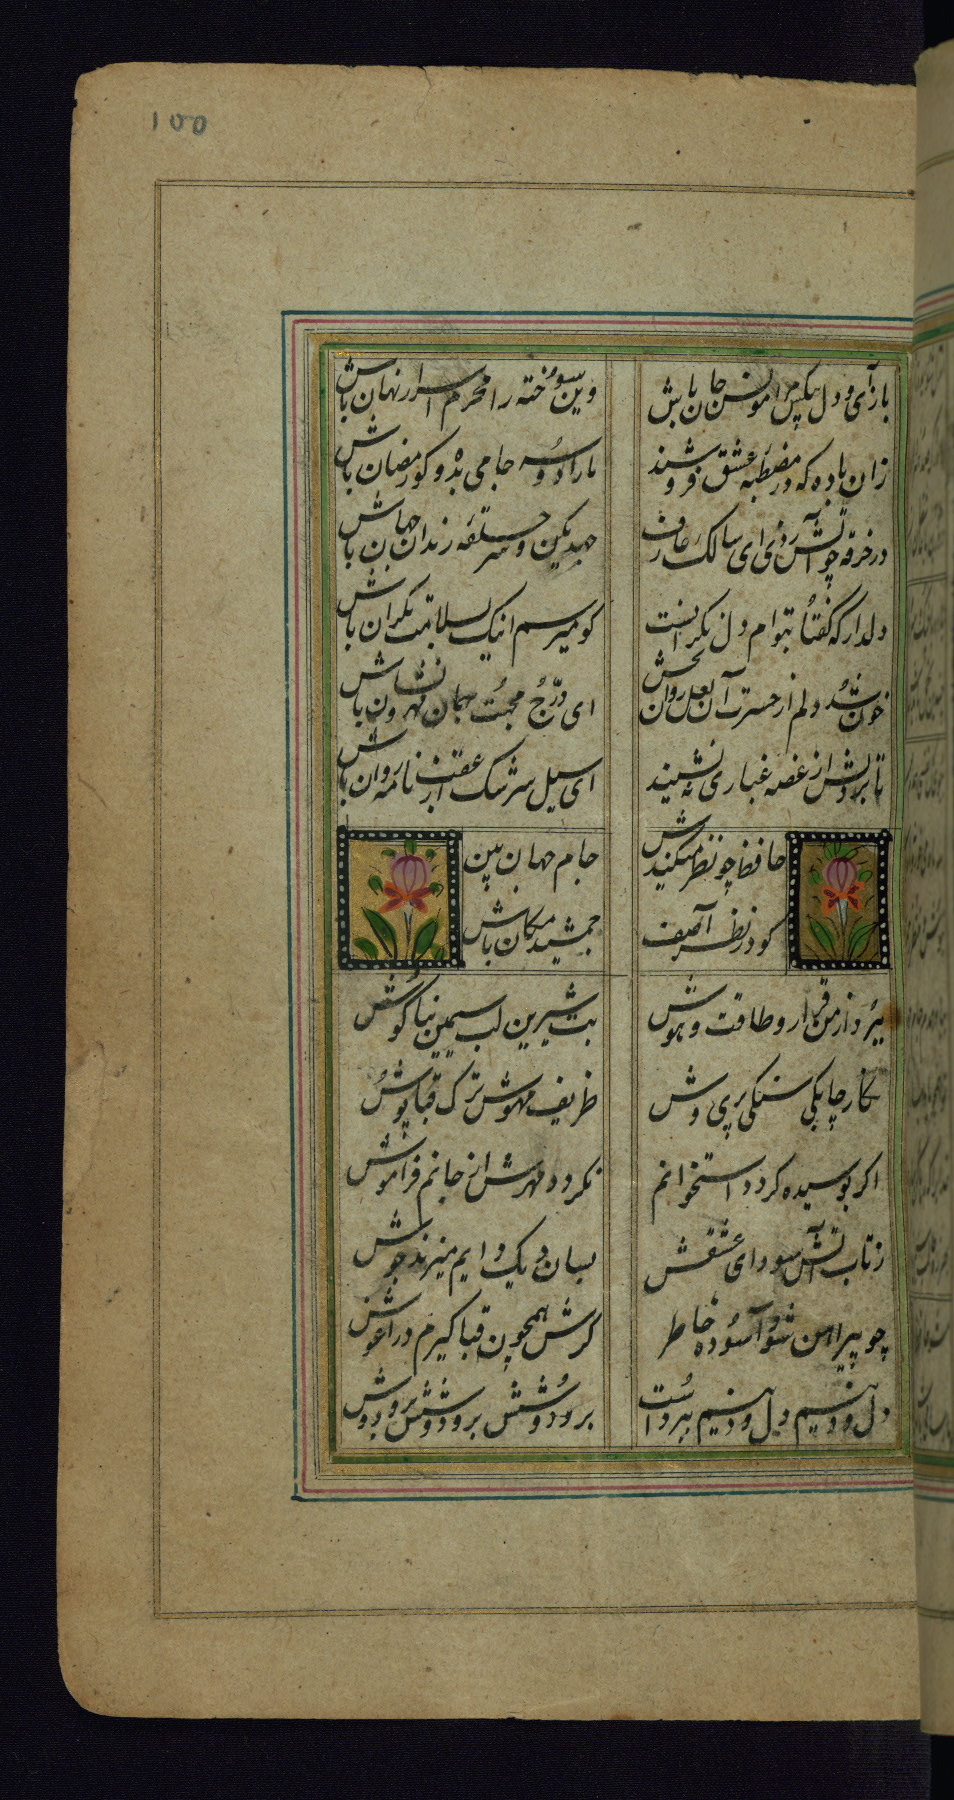 ۱۵۵
بازآی و دل تنک مرا مونس جان باش
وین سوخته را محرم اسرار نهان باش
زان باده که در مصطبه عشق فروشند
ما را دو سه جامی بده و کو رمضان باش
در خرقه چو آتش زدی ای سالک عارف
جهدی کن و سرحلقه رندان جهان باش
دلدار که گفتا بتوام دل نکرانست
کو میرسم اینک بسلامت نکران باش
خون شد دلم از حسرت آن لعل روان بخش
ای درج محبت بهمان مهر و نشان باش
تا بر دلش از غصه غباری ننشیند
ای سیل سرشک از عقب نامه روان باش
حافظ چو نظر میکندش
جام جهان بین
کو در نظر آصف
جمشید مکان باش
ببرد از من قرار و طاقت و هوش
بت شیرین لب سیمین بناکوش
نکار چابکی سنکی پری وش
ظریف مهوش ترک قباپوش
اکر بوسیده کردد استخوانم
نکردد مهرش از جانم فراموش
ز تاب آتش سودای عشقش
بسان دیک دایم میزند جوش
چو پیراهن شوم آسوده خاطر
کرش همچون قبا کیرم در آغوش
دل و دینم دل و دینم ببردست
بر و دوشش بر و دوشش بر و دوش